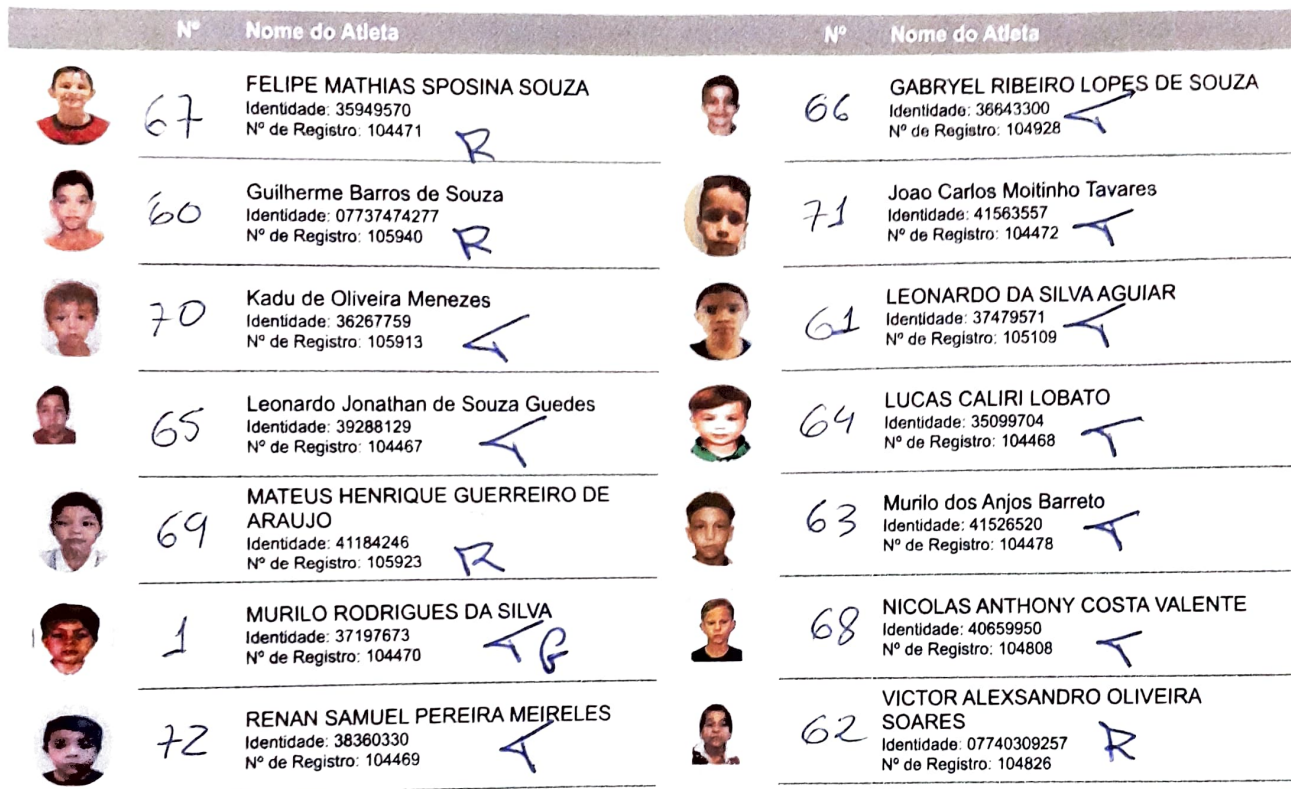 Nº Nome do Atleta
67 FELIPE MATHIAS SPOSINA SOUZA
Identidade: 35949570
Nº de Registro: 104471 R
60 Guilherme Barros de Souza
Identidade: 07737474277
Nº de Registro: 105940 R
70 Kadu de Oliveira Menezes
Identidade: 36267759
Nº de Registro: 105913 T
65 Leonardo Jonathan de Souza Guedes
Identidade: 39288129
Nº de Registro: 104467 T
69 MATEUS HENRIQUE GUERREIRO DE
ARAUJO
Identidade: 41184246
Nº de Registro: 105923 R
1 MURILO RODRIGUES DA SILVA
Identidade: 37197673
Nº de Registro: 104470 T G
72 RENAN SAMUEL PEREIRA MEIRELES
Identidade: 38360330
Nº de Registro: 104469 T
Nº Nome do Atleta
66 GABRYEL RIBEIRO LOPES DE SOUZA
Identidade: 36643300
Nº de Registro: 104928 T
71 Joao Carlos Moitinho Tavares
Identidade: 41563557
Nº de Registro: 104472 T
61 LEONARDO DA SILVA AGUIAR
Identidade: 37479571
Nº de Registro: 105109 T
64 LUCAS CALIRI LOBATO
Identidade: 35099704
Nº de Registro: 104468 T
63 Murilo dos Anjos Barreto
Identidade: 41526520
Nº de Registro: 104478 T
68 NICOLAS ANTHONY COSTA VALENTE
Identidade: 40659950
Nº de Registro: 104808 T
62 VICTOR ALEXSANDRO OLIVEIRA
SOARES
Identidade: 07740309257
Nº de Registro: 104826 R